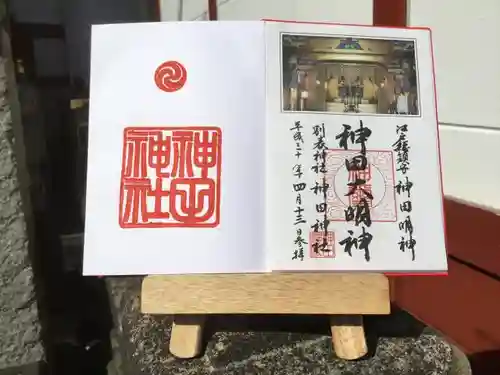 江戸総鎮守 神田明神
神田大明神
別表神社 神田神社
平成三十年四月十三日参拝
神田
神社